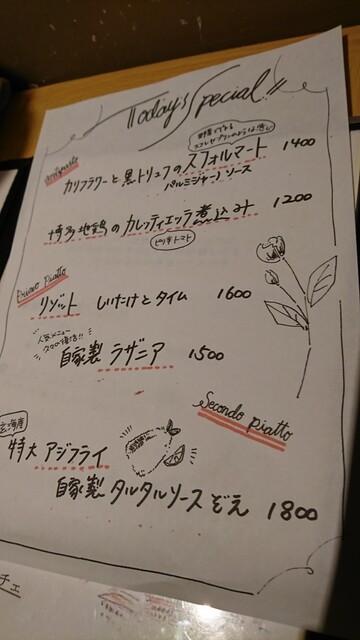 Today's Special!!
Antipasto
野菜でつくる
スフレとプリンのような感じ
カリフラワーと黒トリュフのスフォルマート 1400
パルミジャーノソース
博多地鶏のカレッティエッラ煮込み 1200
ピリ辛トマト
Primo piatto
リゾット しいたけとタイム 1600
人気メニュー
自家製 ラザニア 1500
Secondo piatto
玄海産
特大 アジフライ
自家製 タルタルソースぞえ 1800
チェ